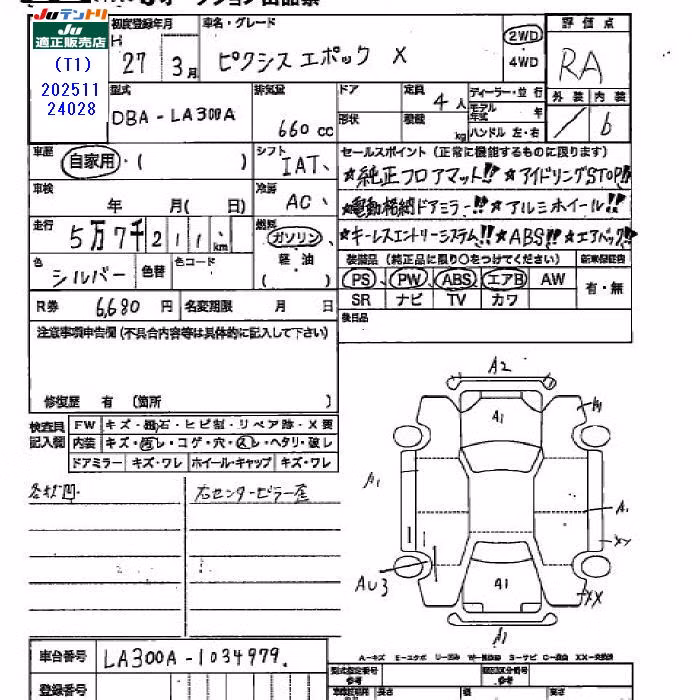 Juテントリ
Ju
適正販売店
(T1)
202511
24028
初度登録年月
H 27 3月
車名・グレード
ピクシスエポック X
2WD
4WD
評価点
RA
型式
DBA-LA300A
排気量
660cc
ドア
形状
定員 4人
積載 kg
ディーラー・並行
モデル年式 年
ハンドル 左・右
外装 内装
/ 6
車歴
自家用・( )
シフト
IAT、
セールスポイント (正常に機能するものに限ります)
★純正フロアマット!! ★アイドリングSTOP!!
★電動格納ドアミラー!! ★アルミホイール!!
★キーレスエントリーシステム!! ★ABS!! ★エアバック!!
車検
年 月( 日)
冷房
AC、
走行
5万7千211km
燃料
ガソリン、
軽・油
( )
色
シルバー
色替
色コード
装備品 (純正品に限り○をつけてください)
新車保証書
PS、PW、ABS エアB AW
SR ナビ TV カワ
有・無
R券 6,680円
名変期限 月 日
後日品
注意事項申告欄 (不具合内容等は具体的に記入して下さい)
修復歴 有 (箇所 )
検査員
記入欄
FW キズ・飛石・ヒビ割・リペア跡・X要
内装 キズ・汚レ・コゲ・穴・スレ・ヘタリ・破レ
ドアミラー キズ・ワレ ホイール・キャップ キズ・ワレ
右センターピラー歪
A2
A1
A1
A1
XX
AU3
A1
XX
A1
車台番号
LA300A-1034979.
登録番号
型式指定番号
参考
類別区分番号
参考
長さ
幅
高さ